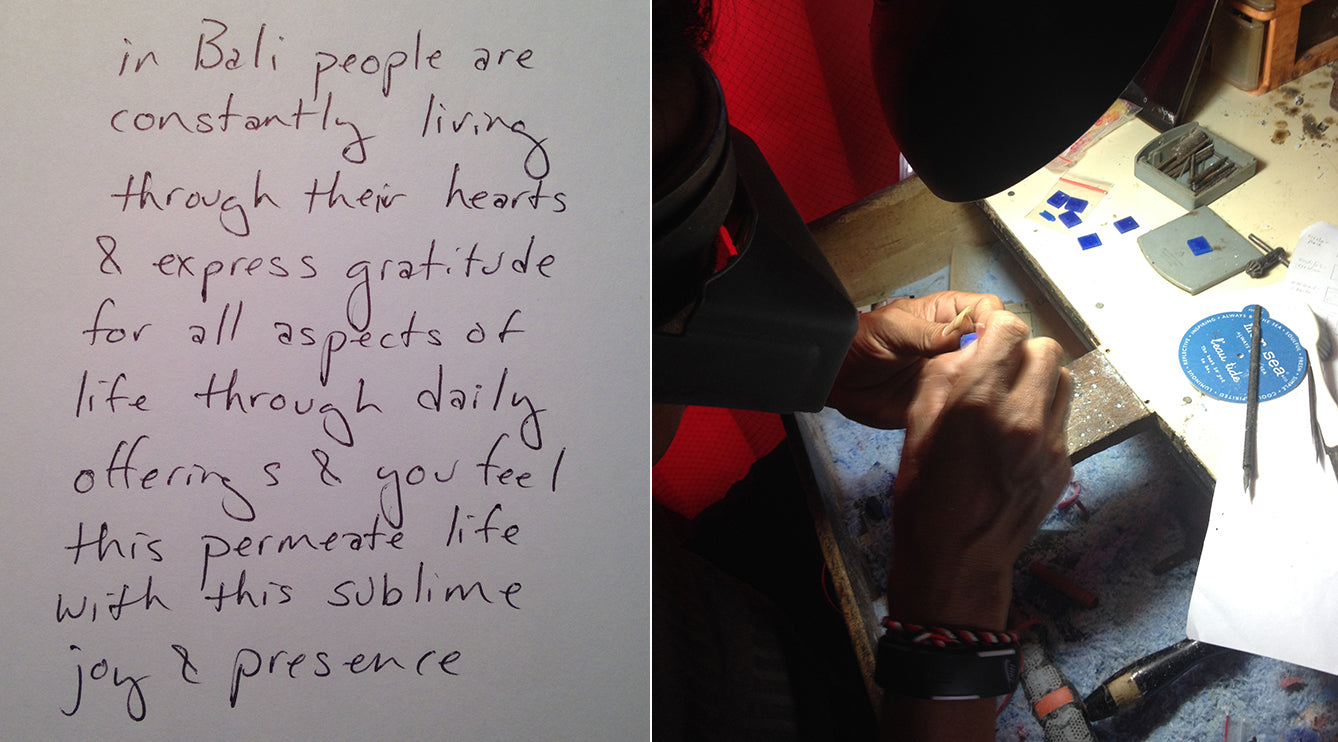 in Bali people are
constantly living
through their hearts
& express gratitude
for all aspects of
life through daily
offerings & you feel
this permeate life
with this sublime
joy & presence
sea
l'eau tide